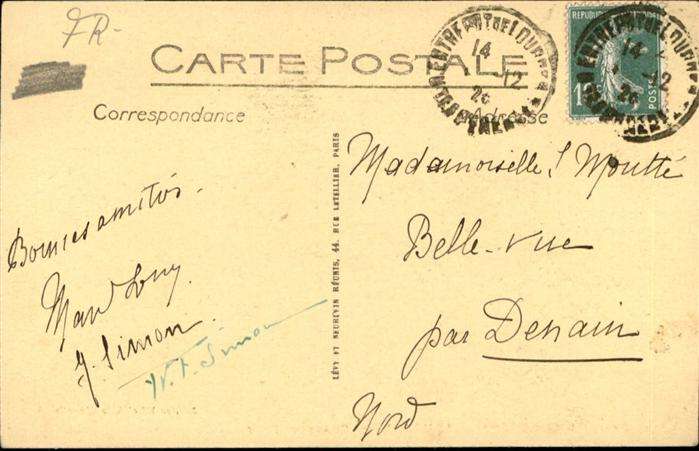 FR-
CARTE POSTALE
Correspondance
Adresse
14
12
26
14
12
26
REPUBLIQUE
POSTES
Bonnes amitiés.
J. Simon.
Simon
LÉVY ET NEURDEIN RÉUNIS, 44, RUE LETELLIER, PARIS
Mademoiselle S Moutté
Belle-vue
par Denain
Nord